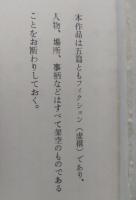 本作品は五篇ともフィクション（虚構）であり、
人物、場所、事柄などはすべて架空のものである
ことをお断わりしておく。